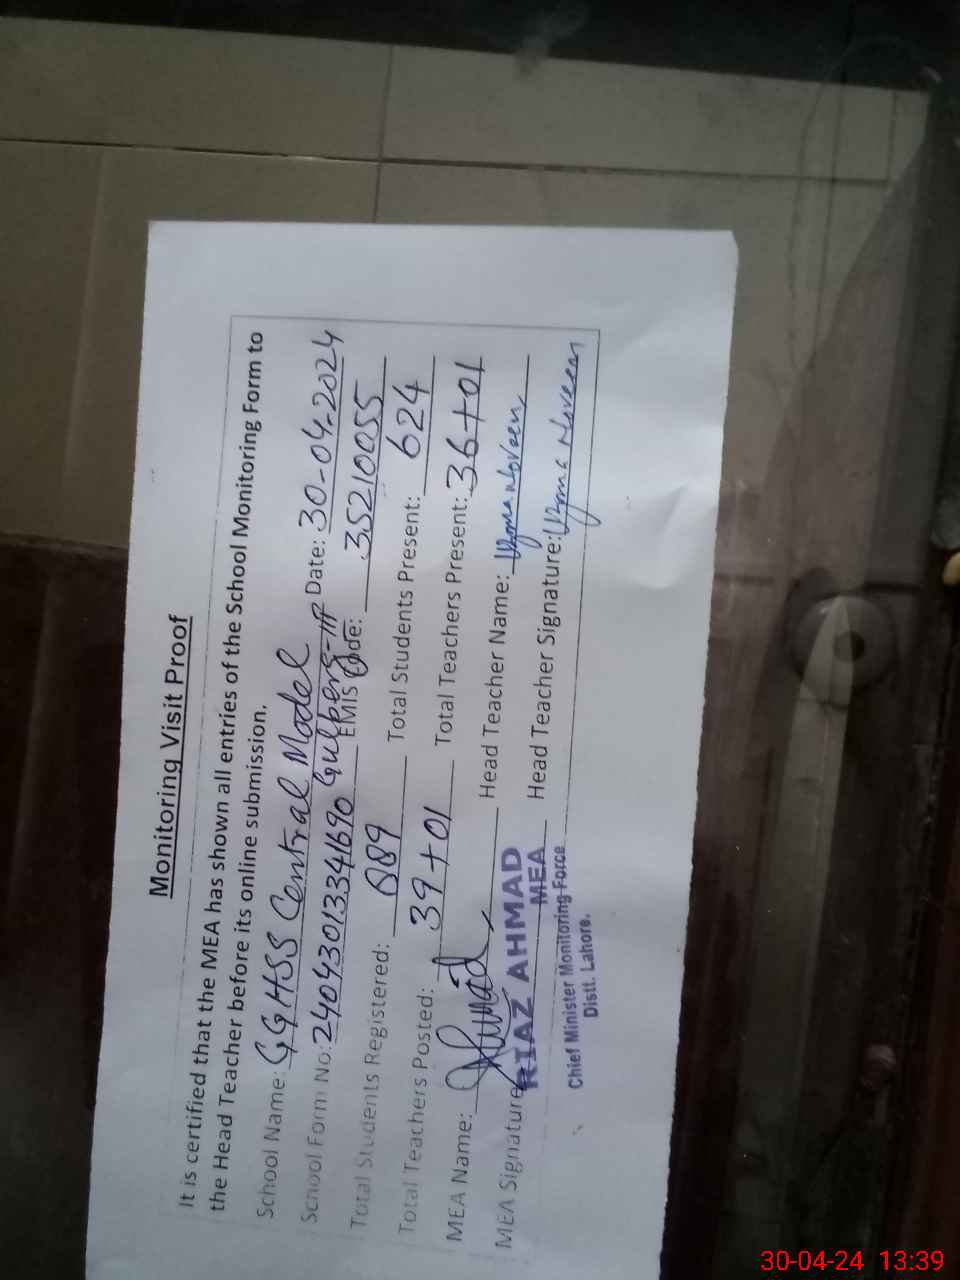 Monitoring Visit Proof
It is certified that the MEA has shown all entries of the School Monitoring Form to
the Head Teacher before its online submission.
School Name: GGHSS Central Model Date: 30-04-2024
Gulberg-III
School Form No: 2404301334 1690 EMIS Code: 35210055
Total Students Registered: 889 Total Students Present: 624
Total Teachers Posted: 39+01 Total Teachers Present: 36+01
MEA Name: Head Teacher Name: Uzma Noreen
MEA Signature Head Teacher Signature: Uzma Noreen
RIAZ AHMAD
MEA
Chief Minister Monitoring Force
Distt. Lahore.
30-04-24 13:39